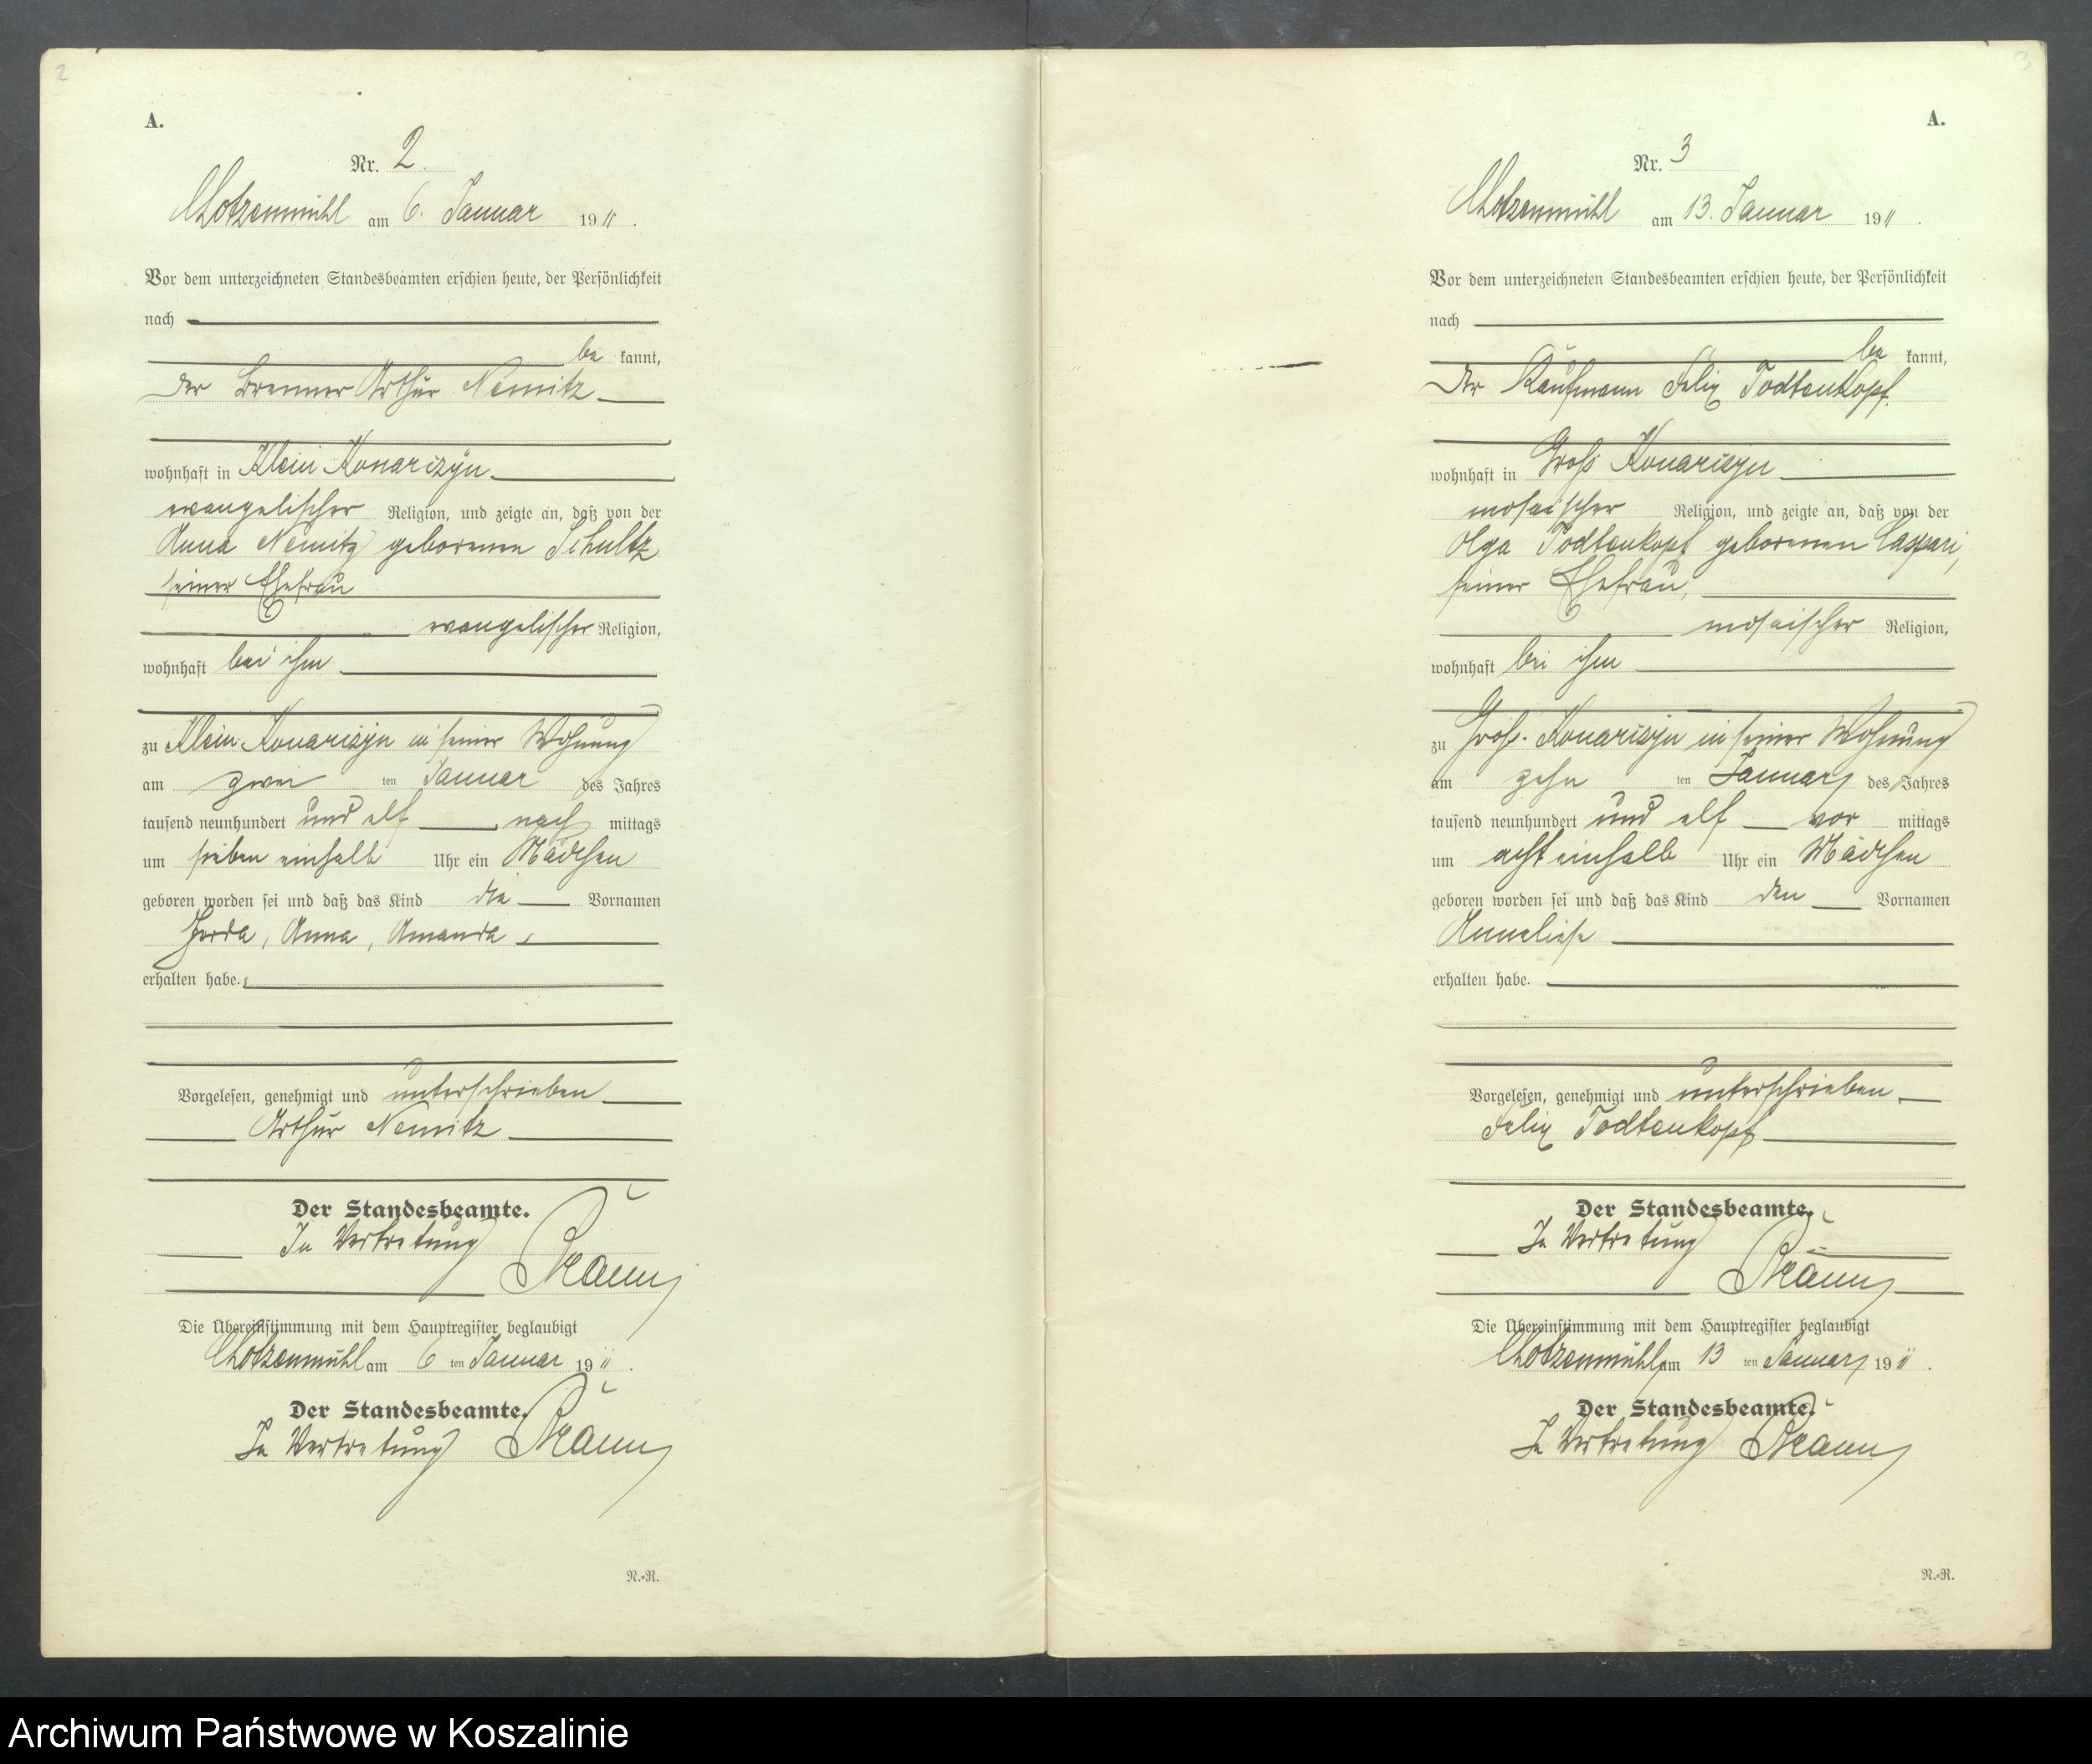 2
A.
Nr. 2.
Chotzenmühl am 6. Januar 1911.
Vor dem unterzeichneten Standesbeamten erschien heute, der Persönlichkeit
nach
be kannt,
der Brenner Arthur Nemitz
wohnhaft in Klein Konarczyn
evangelischer Religion, und zeigte an, daß von der
Anna Nemitz geborenen Schultz
seiner Ehefrau
evangelischer Religion,
wohnhaft bei ihm
zu Klein Konarczyn in seiner Wohnung
am zwei ten Januar des Jahres
tausend neunhundert und elf nach mittags
um sieben einhalb Uhr ein Mädchen
geboren worden sei und daß das Kind die Vornamen
Gerda, Anna, Amanda,
erhalten habe.
Vorgelesen, genehmigt und unterschrieben
Arthur Nemitz
Der Standesbeamte.
In Vertretung
Die Übereinstimmung mit dem Hauptregister beglaubigt
Chotzenmühl am 6 ten Januar 1911.
Der Standesbeamte.
In Vertretung
N.-R.
3
A.
Nr. 3
Chotzenmühl am 13. Januar 1911.
Vor dem unterzeichneten Standesbeamten erschien heute, der Persönlichkeit
nach
be kannt,
der Kaufmann Felix Todtenkopf
wohnhaft in Groß Konarczyn
mosaischer Religion, und zeigte an, daß von der
Olga Todtenkopf geborenen Caspari,
seiner Ehefrau,
mosaischer Religion,
wohnhaft bei ihm
zu Groß-Konarczyn in seiner Wohnung
am zehn ten Januar des Jahres
tausend neunhundert und elf vor mittags
um acht einhalb Uhr ein Mädchen
geboren worden sei und daß das Kind den Vornamen
Anneliese
erhalten habe.
Vorgelesen, genehmigt und unterschrieben
Felix Todtenkopf
Der Standesbeamte.
In Vertretung
Die Übereinstimmung mit dem Hauptregister beglaubigt
Chotzenmühl am 13 ten Januar 1911.
Der Standesbeamte.
In Vertretung
N.-R.
Archiwum Państwowe w Koszalinie